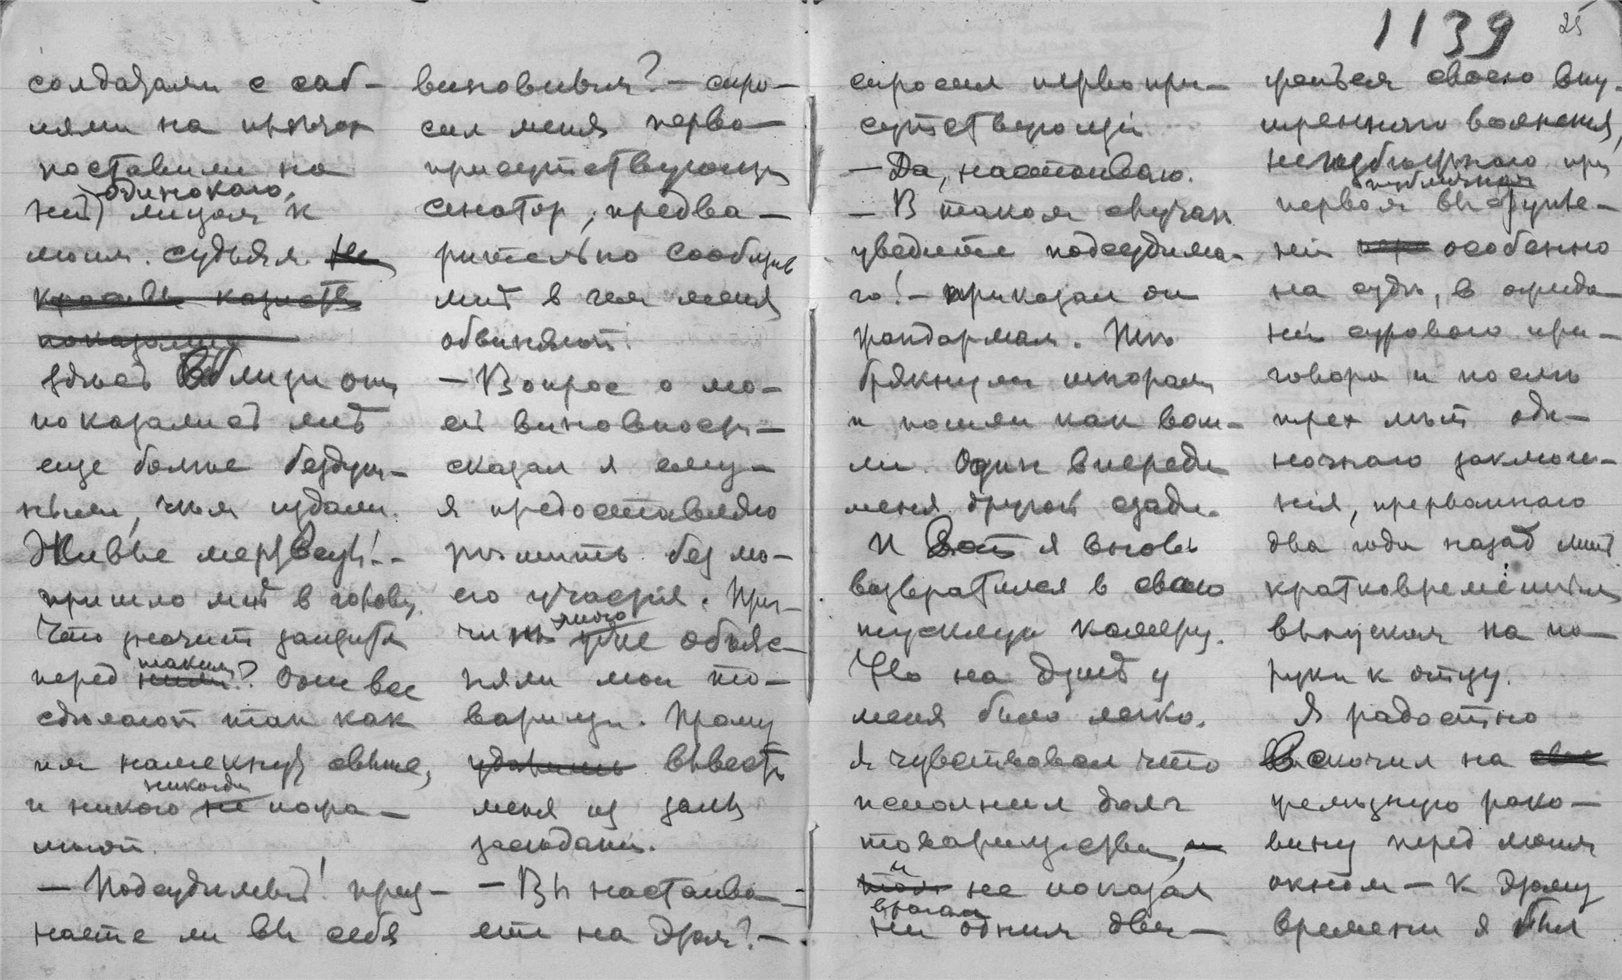 1139
25
солдатами с саб-
лями на плечах
поставили на
одинокаго,
лицом к
моим судьям. Не
красивы казисты
показались
здесь Вблизи они
показалисѣ мнѣ
еще более бездуш-
ными, чѣм издали.
Живые мертвецы!..
пришло мнѣ в голову.
Что значит защита
такими
перед ними? Они все
сдѣлают так как
им намекнут свыше,
никогда
и никого не поща-
дят.
— Подсудимый! приз-
наете ли вы себя
виновным? — спро-
сил меня перво-
присутствующий
сенатор, предва-
рительно сообщив
мнѣ в чем меня
обвиняют.
— Вопрос о мо-
ей виновности —
сказал я ему —
я предоставляю
рѣшить без мо-
его участія. При-
много
чины уже объяс-
няли мои то-
варищи. Прошу
удалить вывести
меня из залы
засѣданій.
— Вы настаива-
ете на этом? —
спросил первопри-
сутствующій
— Да, настаиваю.
— В таком случаѣ
уведите подсудима-
го! — приказал он
жандармам. Тѣ
брякнули шпорами
и пошли как вош-
ли. Один впереди
меня другой сзади.
И Вот я вновь
возвратился в свою
тусклую камеру.
Но на душѣ у
меня было легко.
Я чувствовал что
исполнил долг
товарищества, и
и
не показал
врагам
ни одним дви-
женьем своего вну-
тренняго волненія,
неизбѣжнаго при
публичном
первом выступле-
ніи особенно
на судѣ, в ожида-
ніи суроваго при-
говора и послѣ
трех лѣт оди-
ночнаго заключе-
нія, прерваннаго
два года назад лишь
кратковременным
выпуском на по-
руки к отцу.
Я радостно
Вскочил на свою
желѣзную рако-
вину перед моим
окном — к этому
времени я был